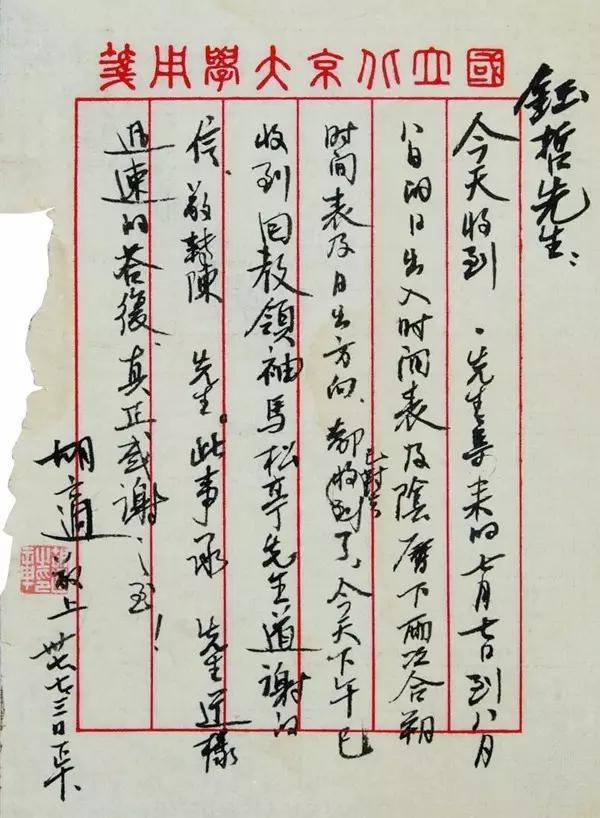 國立北京大學用箋
鈺哲先生：
今天收到 先生寄来的七月七日到八月
八日的日出入时间表及陰曆下兩次合朔
时间表及日出方向，都收到了，今天下午已
收到回教領袖馬松亭先生道谢的
信，敬转陳 先生。此事承 先生这樣
迅速的答復，真正感谢之至！
胡適敬上 卅七，七，三日下午